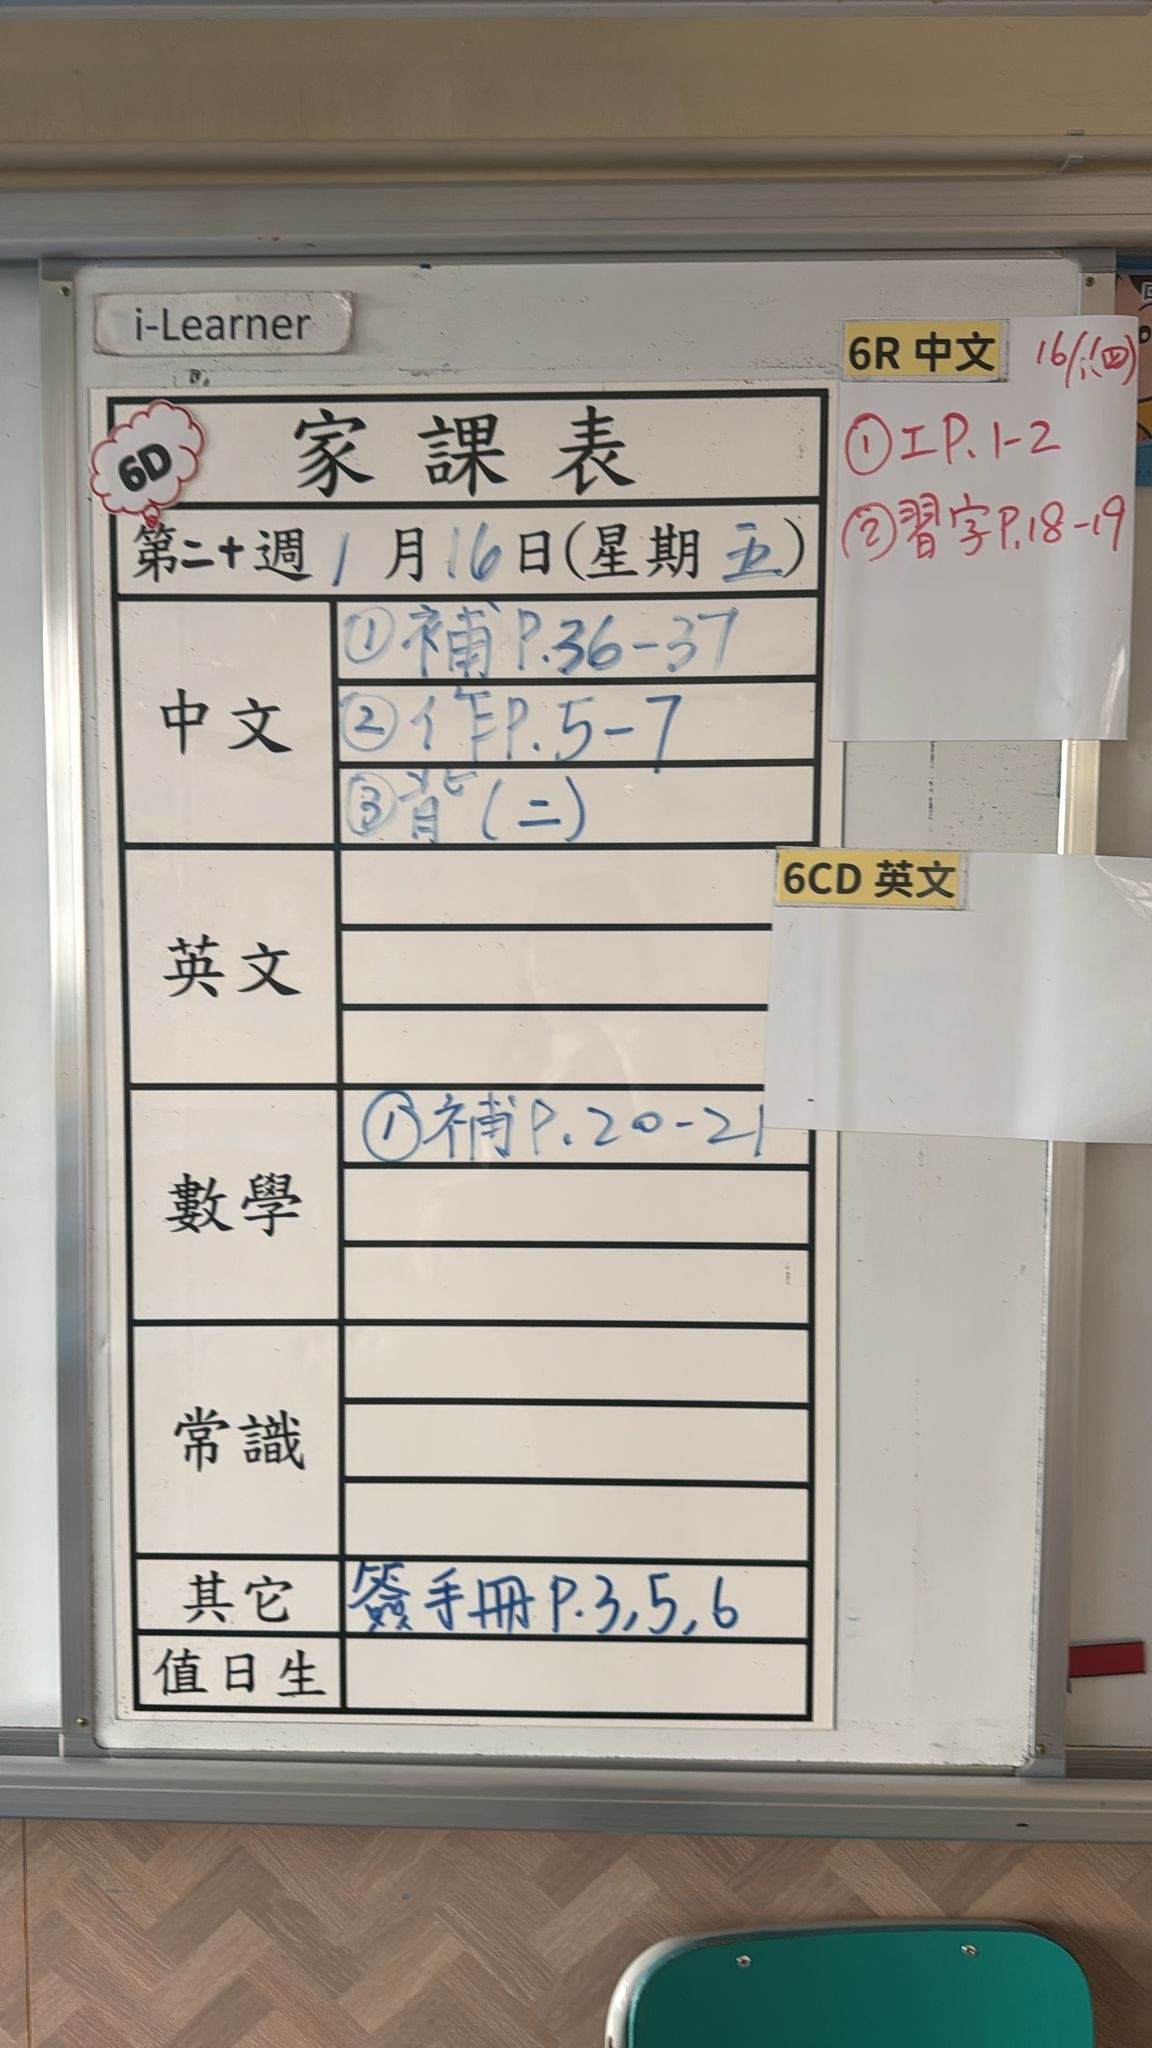 i-Learner
6D
家課表
第二十週 1月16日(星期五)
中文
①補P.36-37
②作P.5-7
③背(二)
英文
數學
①補P.20-21
常識
其它
簽手冊P.3,5,6
值日生
6R 中文
16/1(四)
①工P.1-2
②習字P.18-19
6CD 英文